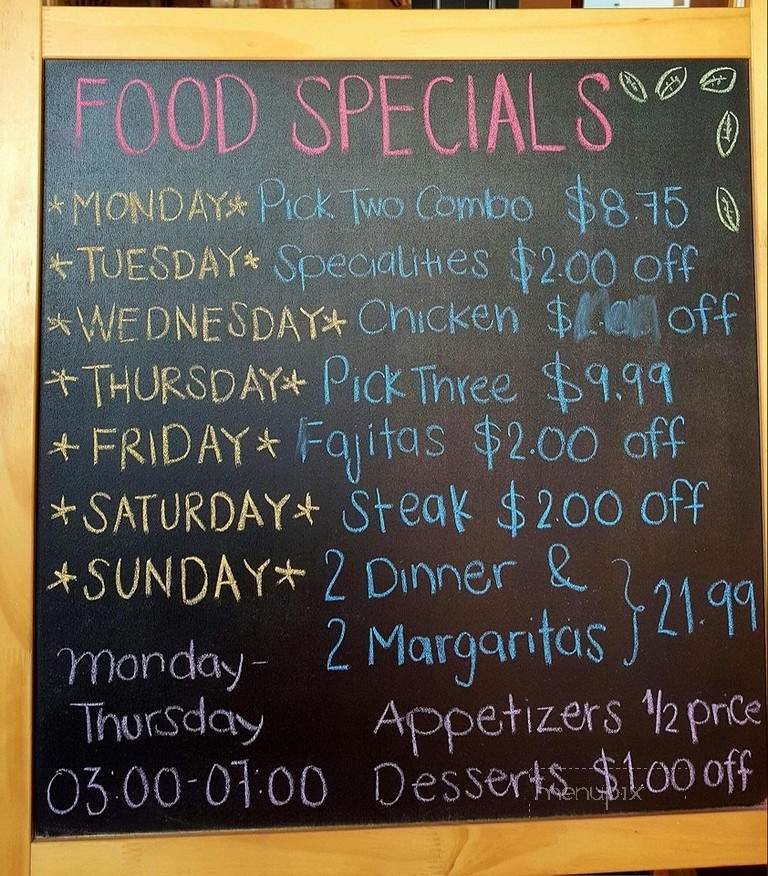 FOOD SPECIALS
*MONDAY* Pick Two Combo $8.75
*TUESDAY* Specialities $2.00 off
*WEDNESDAY* Chicken $ off
*THURSDAY* Pick Three $9.99
*FRIDAY* Fajitas $2.00 off
*SATURDAY* Steak $2.00 off
*SUNDAY* 2 Dinner &
2 Margaritas } 21.99
Monday-
Thursday Appetizers 1/2 price
03:00-07:00 Desserts $1.00 off
menupix